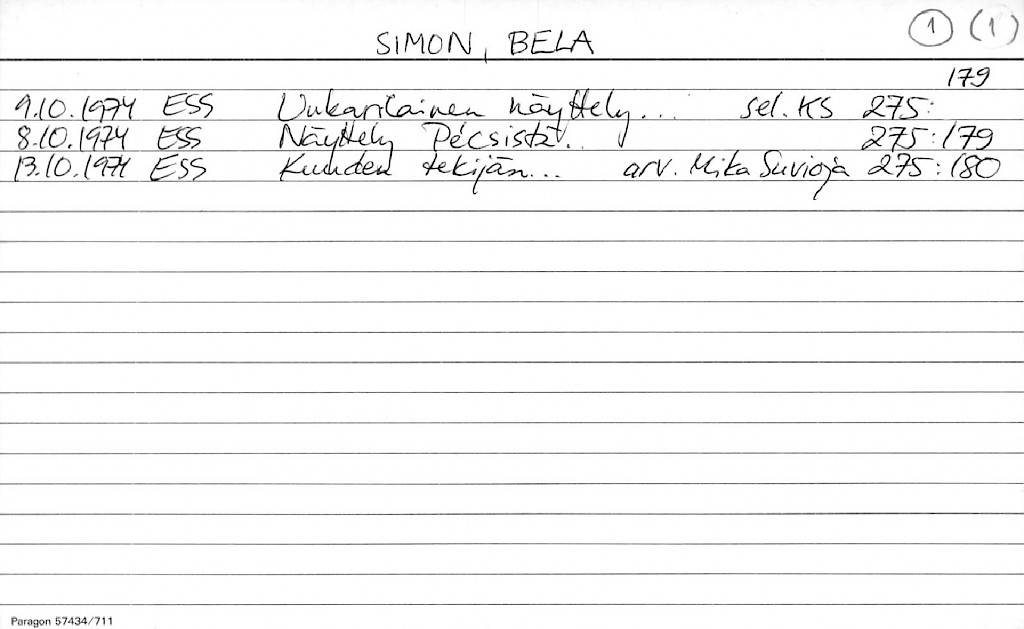 SIMON, BELA
1 (1)
179
9.10.1974 ESS Unkarilainen näyttely... sel. KS 275:
8.10.1974 ESS Näyttely Pécsistä.. 275:179
13.10.1974 ESS Kuuden tekijän... arv. Mika Suvioja 275:180
Paragon 57434/711